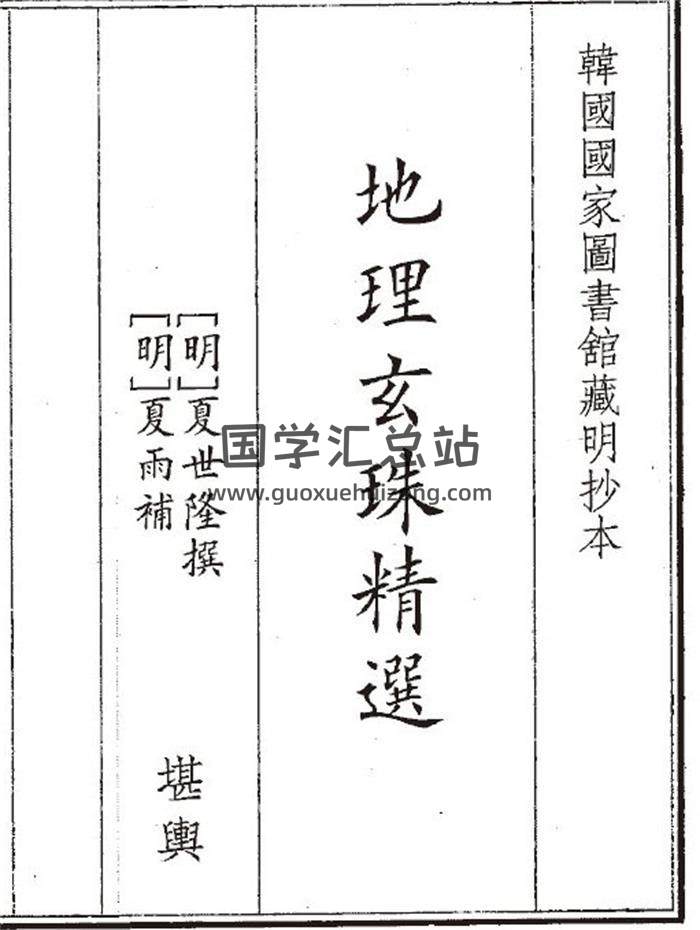 韓國國家圖書舘藏明抄本
地理玄珠精選
[明]夏世隆撰
[明]夏雨補
堪輿
国学汇总站
www.guoxuehuizong.com